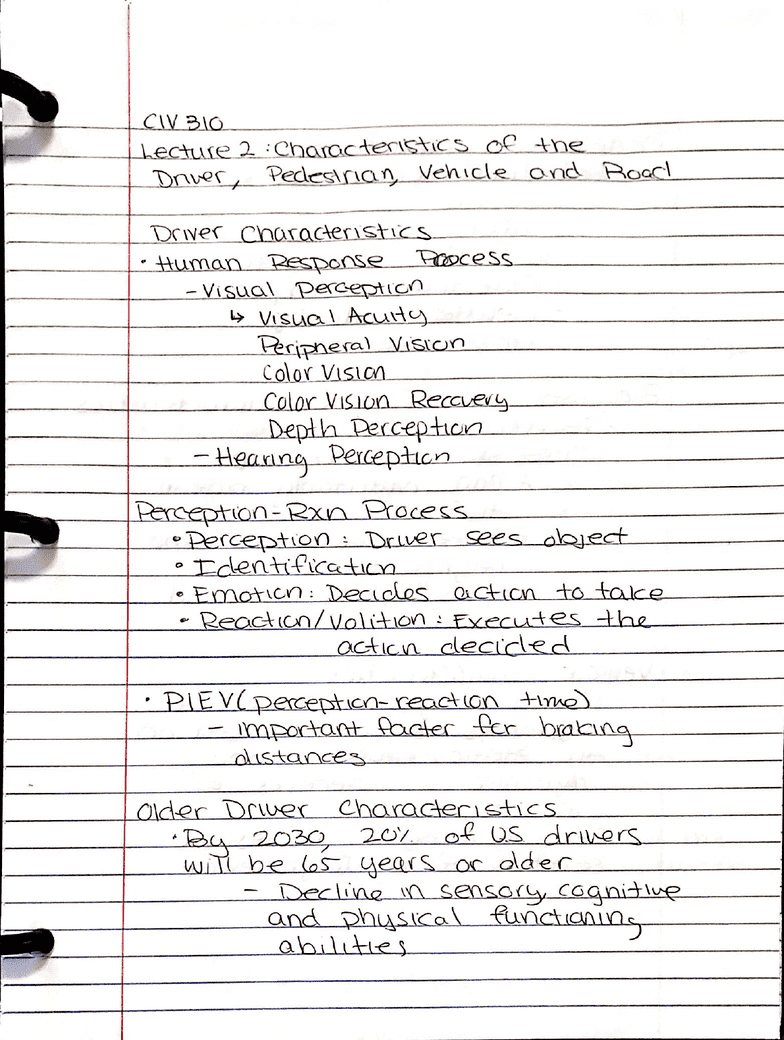 CIV 310
Lecture 2 : Characteristics of the
Driver, Pedestrian, Vehicle and Road
Driver Characteristics
• Human Response Process
- Visual Perception
↳ Visual Acuity
Peripheral Vision
Color Vision
Color Vision Recovery
Depth Perception
- Hearing Perception
Perception-Rxn Process
• Perception : Driver sees object
• Identification
• Emotion : Decides action to take
• Reaction/Volition : Executes the
action decided
• PIEV (perception-reaction time)
- important facter for braking
distances
Older Driver Characteristics
• By 2030, 20% of US drivers
will be 65 years or older
- Decline in sensory, cognitive
and physical functioning
abilities